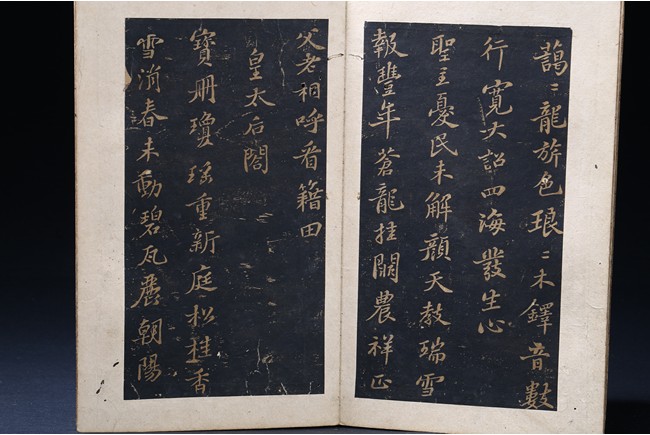 藹〻龍旂色琅〻木鐸音數
行寬大詔四海發生心
聖主憂民未解顏天教瑞雪
報豐年蒼龍挂闕農祥正
父老相呼看籍田
皇太后閤
寶册瓊瑤重新庭松桂香
雪消春未動碧瓦麗朝陽